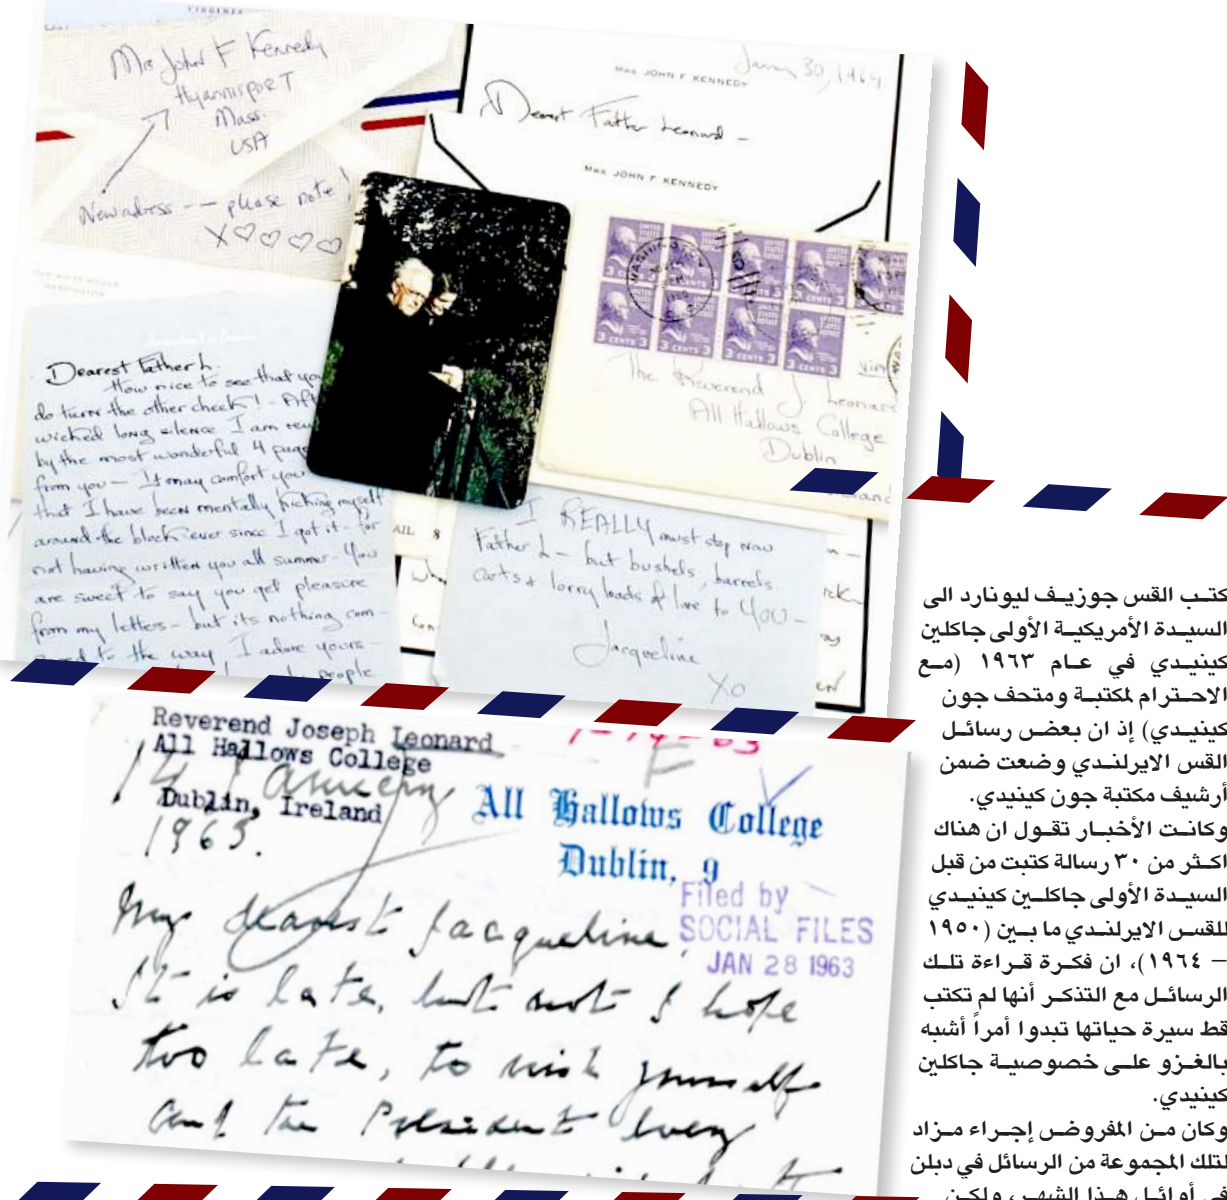 VIRGINIA
Mrs John F Kennedy
Hyannisport
Mass.
USA
New adress -- please note!
X♡♡♡♡
January 30, 1964
MRS JOHN F KENNEDY
Dearest Father Leonard -
MRS JOHN F KENNEDY
UNITED STATES POSTAGE
3 CENTS 3
WASHINGTON
The Reverend J. Leonard
All Hallows College
Dublin
Dearest Father L.
How nice to see that you
do turn the other cheek! - Aft
wicked long silence I am rew
by the most wonderful 4 page
from you — It may comfort you
that I have been mentally kicking myself
around the block ever since I got it - for
not having written you all summer - You
are sweet to say you get pleasure
from my letters - but its nothing com-
pared to the way I adore yours -
people
AIL 8
I REALLY must stop now
Father L - but bushels, barrels
carts & lorry loads of love to YOU -
Jacqueline
XO
Reverend Joseph Leonard
All Hallows College
Dublin, Ireland
1-14-63
14 January
1963.
All Hallows College
Dublin, 9
Filed by
SOCIAL FILES
JAN 28 1963
My dearest Jacqueline,
It is late, but not I hope
too late, to wish yourself
and the President every
كتب القس جوزيف ليونارد الى
السيدة الأمريكية الأولى جاكلين
كينيدي في عام ١٩٦٣ (مع
الاحترام لمكتبة ومتحف جون
كينيدي) إذ ان بعض رسائل
القس الايرلندي وضعت ضمن
أرشيف مكتبة جون كينيدي.
وكانت الأخبار تقول ان هناك
اكثر من ٣٠ رسالة كتبت من قبل
السيدة الأولى جاكلين كينيدي
للقس الايرلندي ما بين (١٩٥٠
– ١٩٦٤)، ان فكرة قراءة تلك
الرسائل مع التذكر أنها لم تكتب
قط سيرة حياتها تبدوا أمراً أشبه
بالغزو على خصوصية جاكلين
كينيدي.
وكان من المفروض إجراء مزاد
لتلك المجموعة من الرسائل في دبلن
في أوائل هذا الشهر، ولكن